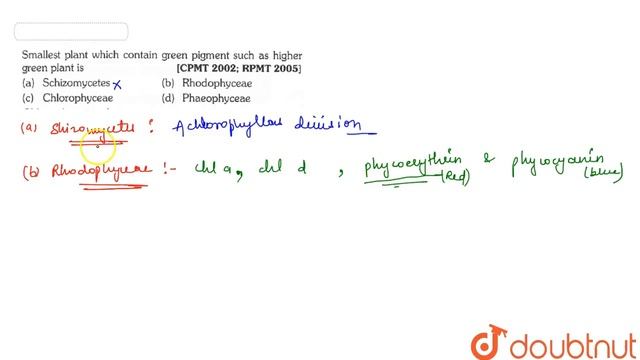 Smallest plant which contain green pigment such as higher
green plant is [CPMT 2002; RPMT 2005]
(a) Schizomycetes x (b) Rhodophyceae
(c) Chlorophyceae (d) Phaeophyceae
(a) Shizomycetes : Achlorophyllous division
(b) Rhodophyceae :- chl a, chl d , phycoerythrin & phycocyanin
(Red) (blue)
doubtnut